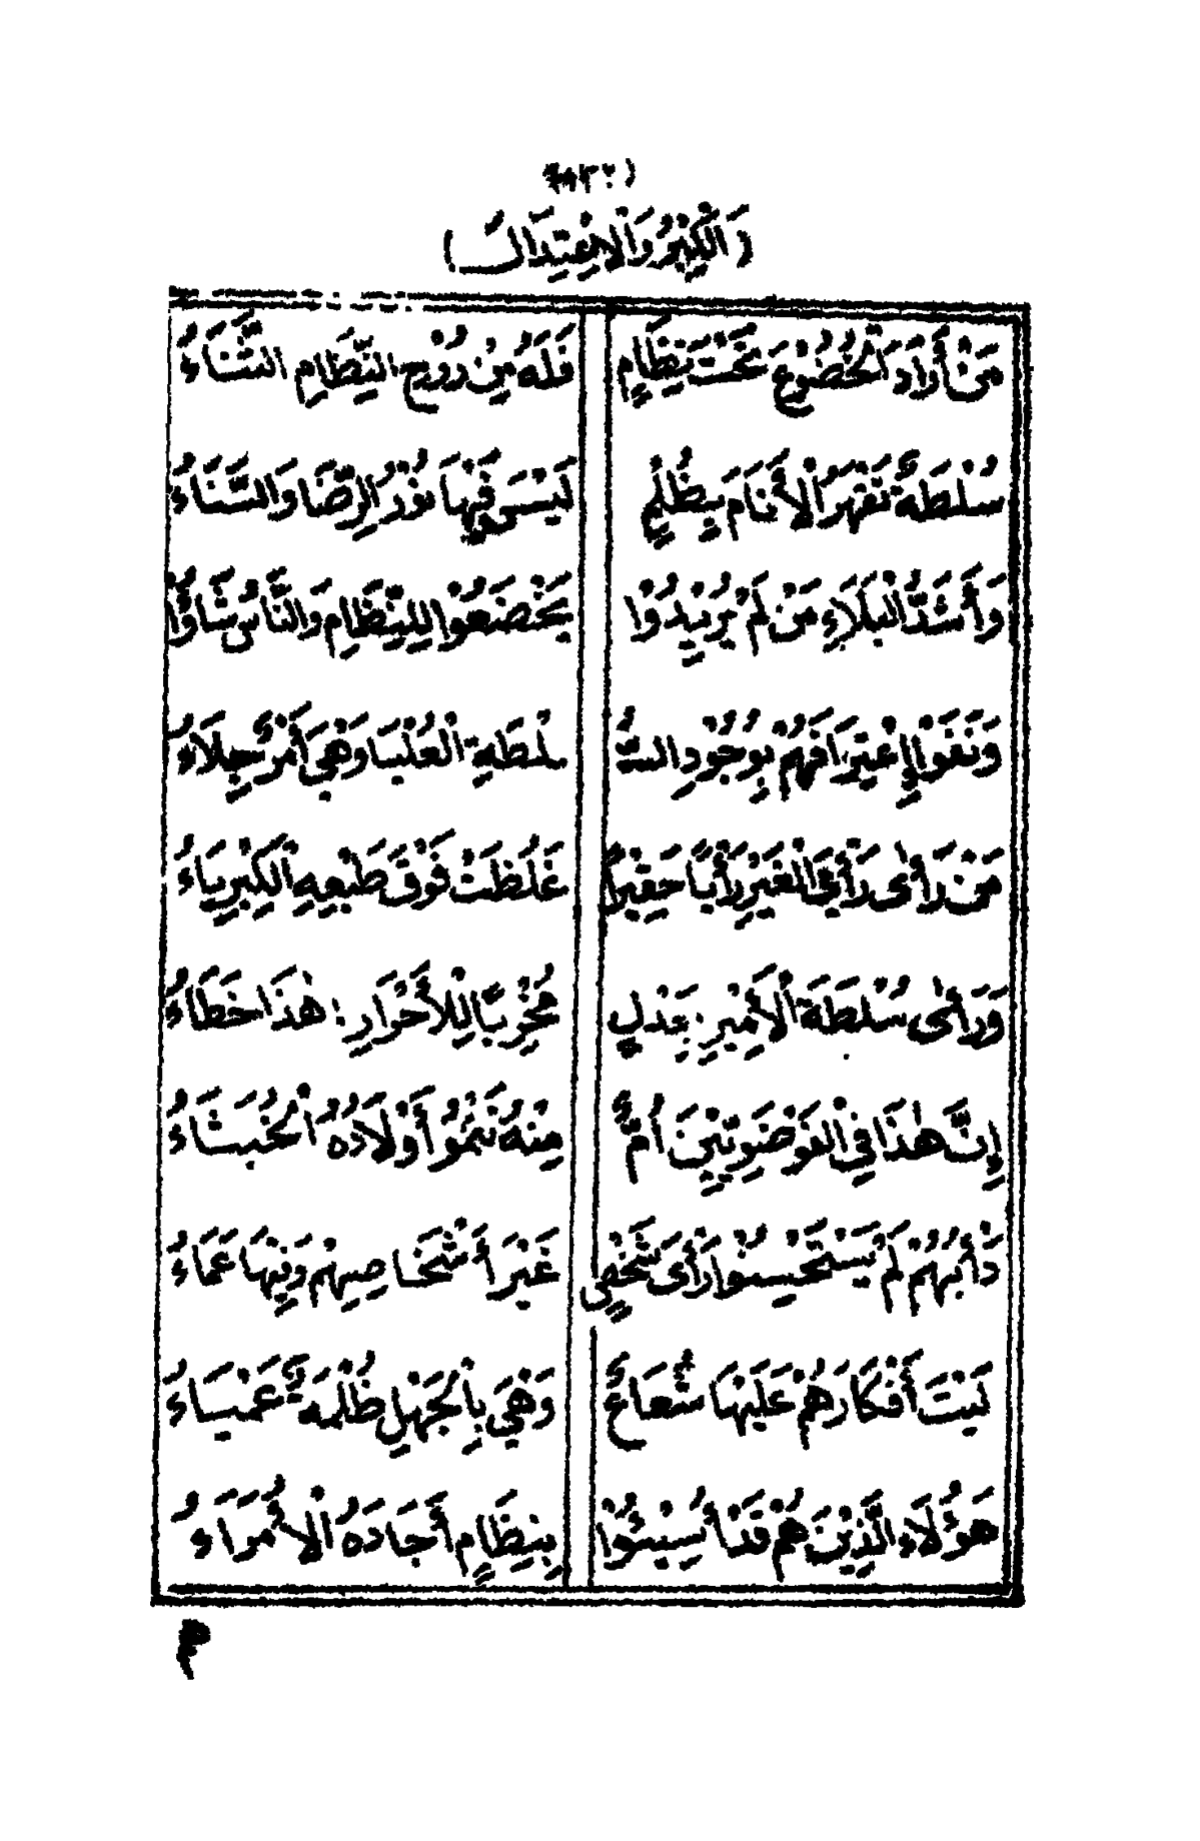 (اَلْكِبْرُ وَالْاِعْتِدَالُ)
مَنْ أَرَادَ الْخُضُوْعَ تَحْتَ نِظَامٍ فَلَهُ مِنْ رُوْحِ النِّظَامِ الثَّنَاءُ
سُلْطَةٌ تَقْهَرُ الْأَنَامَ بِظُلْمٍ لَيْسَ فِيْهَا نُوْرُ الرِّضَا وَالسَّنَاءُ
وَأَشَدُّ الْبَلَاءِ مَنْ لَمْ يُرِيْدُوْا يَخْضَعُوْا لِلنِّظَامِ وَالنَّاسُ شَاؤُا
وَنَفَوْا إِعْتِرَافَهُمْ بِوُجُوْدِ السُّ لْطَةِ الْعُلْيَا وَهْيَ أَمْرٌ جِلَاءُ
مَنْ رَأَى رَأْيَ الْغَيْرِ رَأْيًا حَقِيْرًا غَلُظَتْ فَوْقَ طَبْعِهِ الْكِبْرِيَاءُ
وَرَأَى سُلْطَةَ الْأَمِيْرِ بِعَدْلٍ مُخْزِيًا لِلْأَحْرَارِ: هٰذَا خَطَاءُ
إِنَّ هٰذَا فِي الْفَوْضَوِيِّيْنَ أُمٌّ مِنْهُ تَنْمُوْ أَوْلَادُهُ الْخُبَثَاءُ
دَأْبُهُمْ لَمْ يَسْتَحْسِنُوْا رَأْىَ شَخْصٍ غَيْرَ أَشْخَاصِهِمْ وَفِيْهَا عَمَاءُ
لَيْتَ أَفْكَارَهُمْ عَلَيْهَا شُعَاعٌ وَهْيَ بِالْجَهْلِ ظُلْمَةٌ عَمْيَاءُ
هَؤُلَاءِ الَّذِيْنَ هُمْ قَدْ أُسِيْئُوْا بِنِظَامٍ أَجَادَهُ الْأُمَرَاءُ